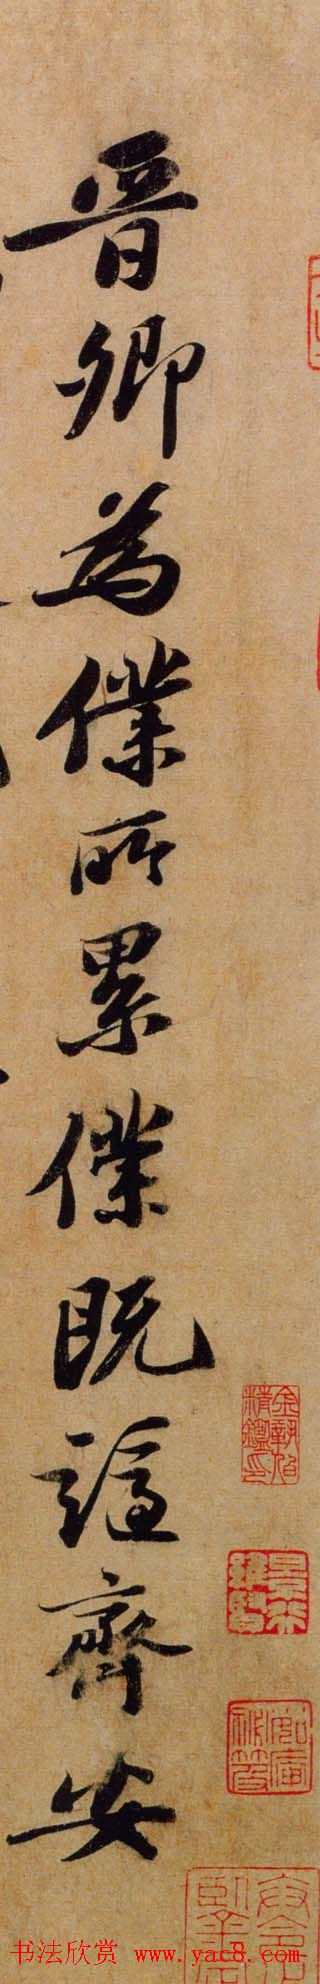 晉卿為僕所累僕既謫齊安
书法欣赏 www.yac8.com